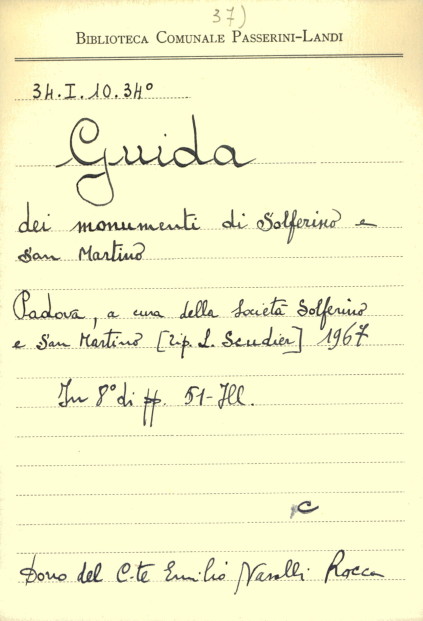 37)
BIBLIOTECA COMUNALE PASSERINI-LANDI
34.I.10.34°
Guida
dei monumenti di Solferino e
San Martino
Padova, a cura della Società Solferino
e San Martino [tip. L. Scudier] 1967
In 8° di pp. 51-Ill.
C
Dono del C.te Emilio Nasalli Rocca